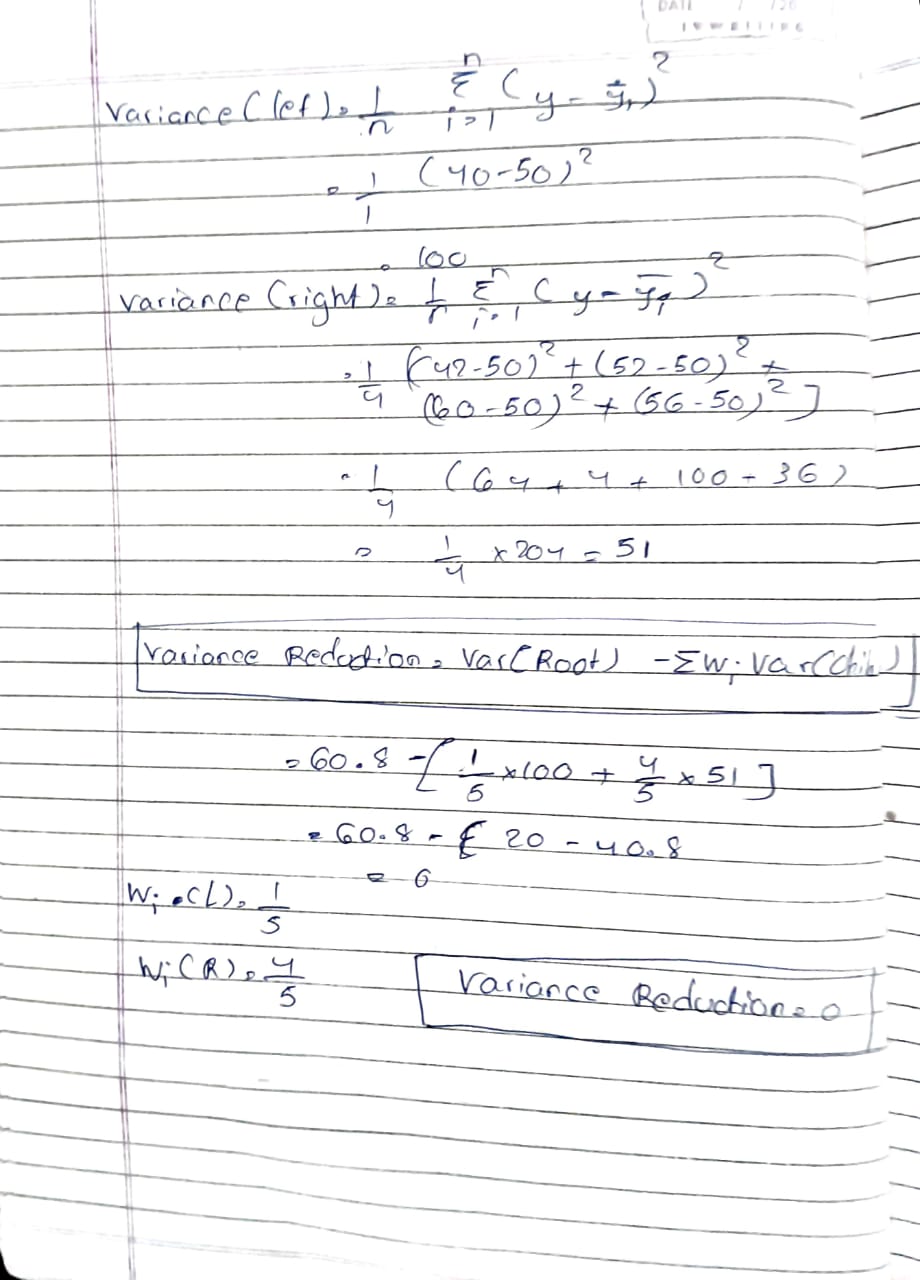 DATE / /20
Variance (lef) = 1/n Σ_{i=1}^{n} (y - ȳ₁)²
= 1/1 (40-50)²
= 100
variance (right) = 1/n Σ_{i=1}^{n} (y - ȳ₁)²
= 1/4 [(42-50)² + (52-50)² +
(60-50)² + (56-50)²]
= 1/4 (64 + 4 + 100 + 36)
= 1/4 x 204 = 51
Variance Reduction = Var(Root) - Σwᵢ Var(Chil)
= 60.8 - [1/5 x 100 + 4/5 x 51]
= 60.8 - [ 20 - 40.8
= 0
Wᵢ (L) = 1/5
Wᵢ (R) = 4/5
Variance Reduction = 0